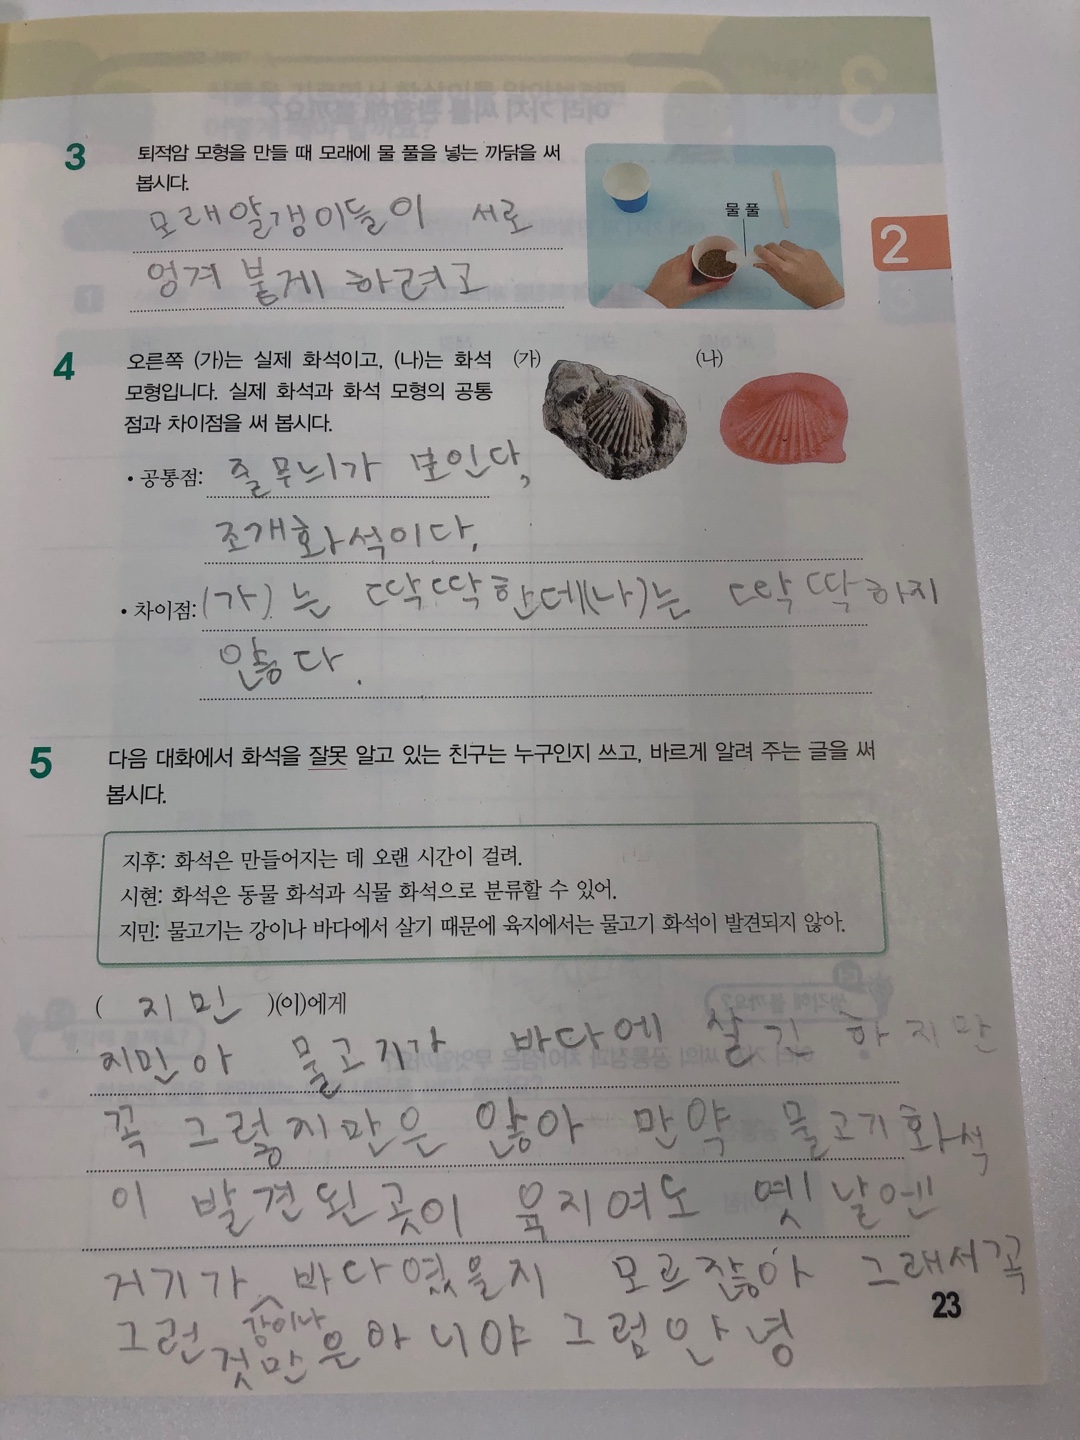 3 퇴적암 모형을 만들 때 모래에 물 풀을 넣는 까닭을 써
봅시다.
모래알갱이들이 서로
엉겨 붙게 하려고
물 풀
2
4 오른쪽 (가)는 실제 화석이고, (나)는 화석
모형입니다. 실제 화석과 화석 모형의 공통
점과 차이점을 써 봅시다.
(가)
(나)
• 공통점: 줄무늬가 보인다,
조개화석이다.
• 차이점: (가)는 딱딱한데(나)는 딱딱하지
않다.
5 다음 대화에서 화석을 잘못 알고 있는 친구는 누구인지 쓰고, 바르게 알려 주는 글을 써
봅시다.
지후: 화석은 만들어지는 데 오랜 시간이 걸려.
시현: 화석은 동물 화석과 식물 화석으로 분류할 수 있어.
지민: 물고기는 강이나 바다에서 살기 때문에 육지에서는 물고기 화석이 발견되지 않아.
( 지민 )(이)에게
지민아 물고기가 바다에 살긴 하지만
꼭 그렇지만은 않아 만약 물고기화석
이 발견된곳이 육지여도 옛날엔
거기가 강이나 바다였을지 모르잖아 그래서꼭
그런 것만은아니야 그럼안녕
23